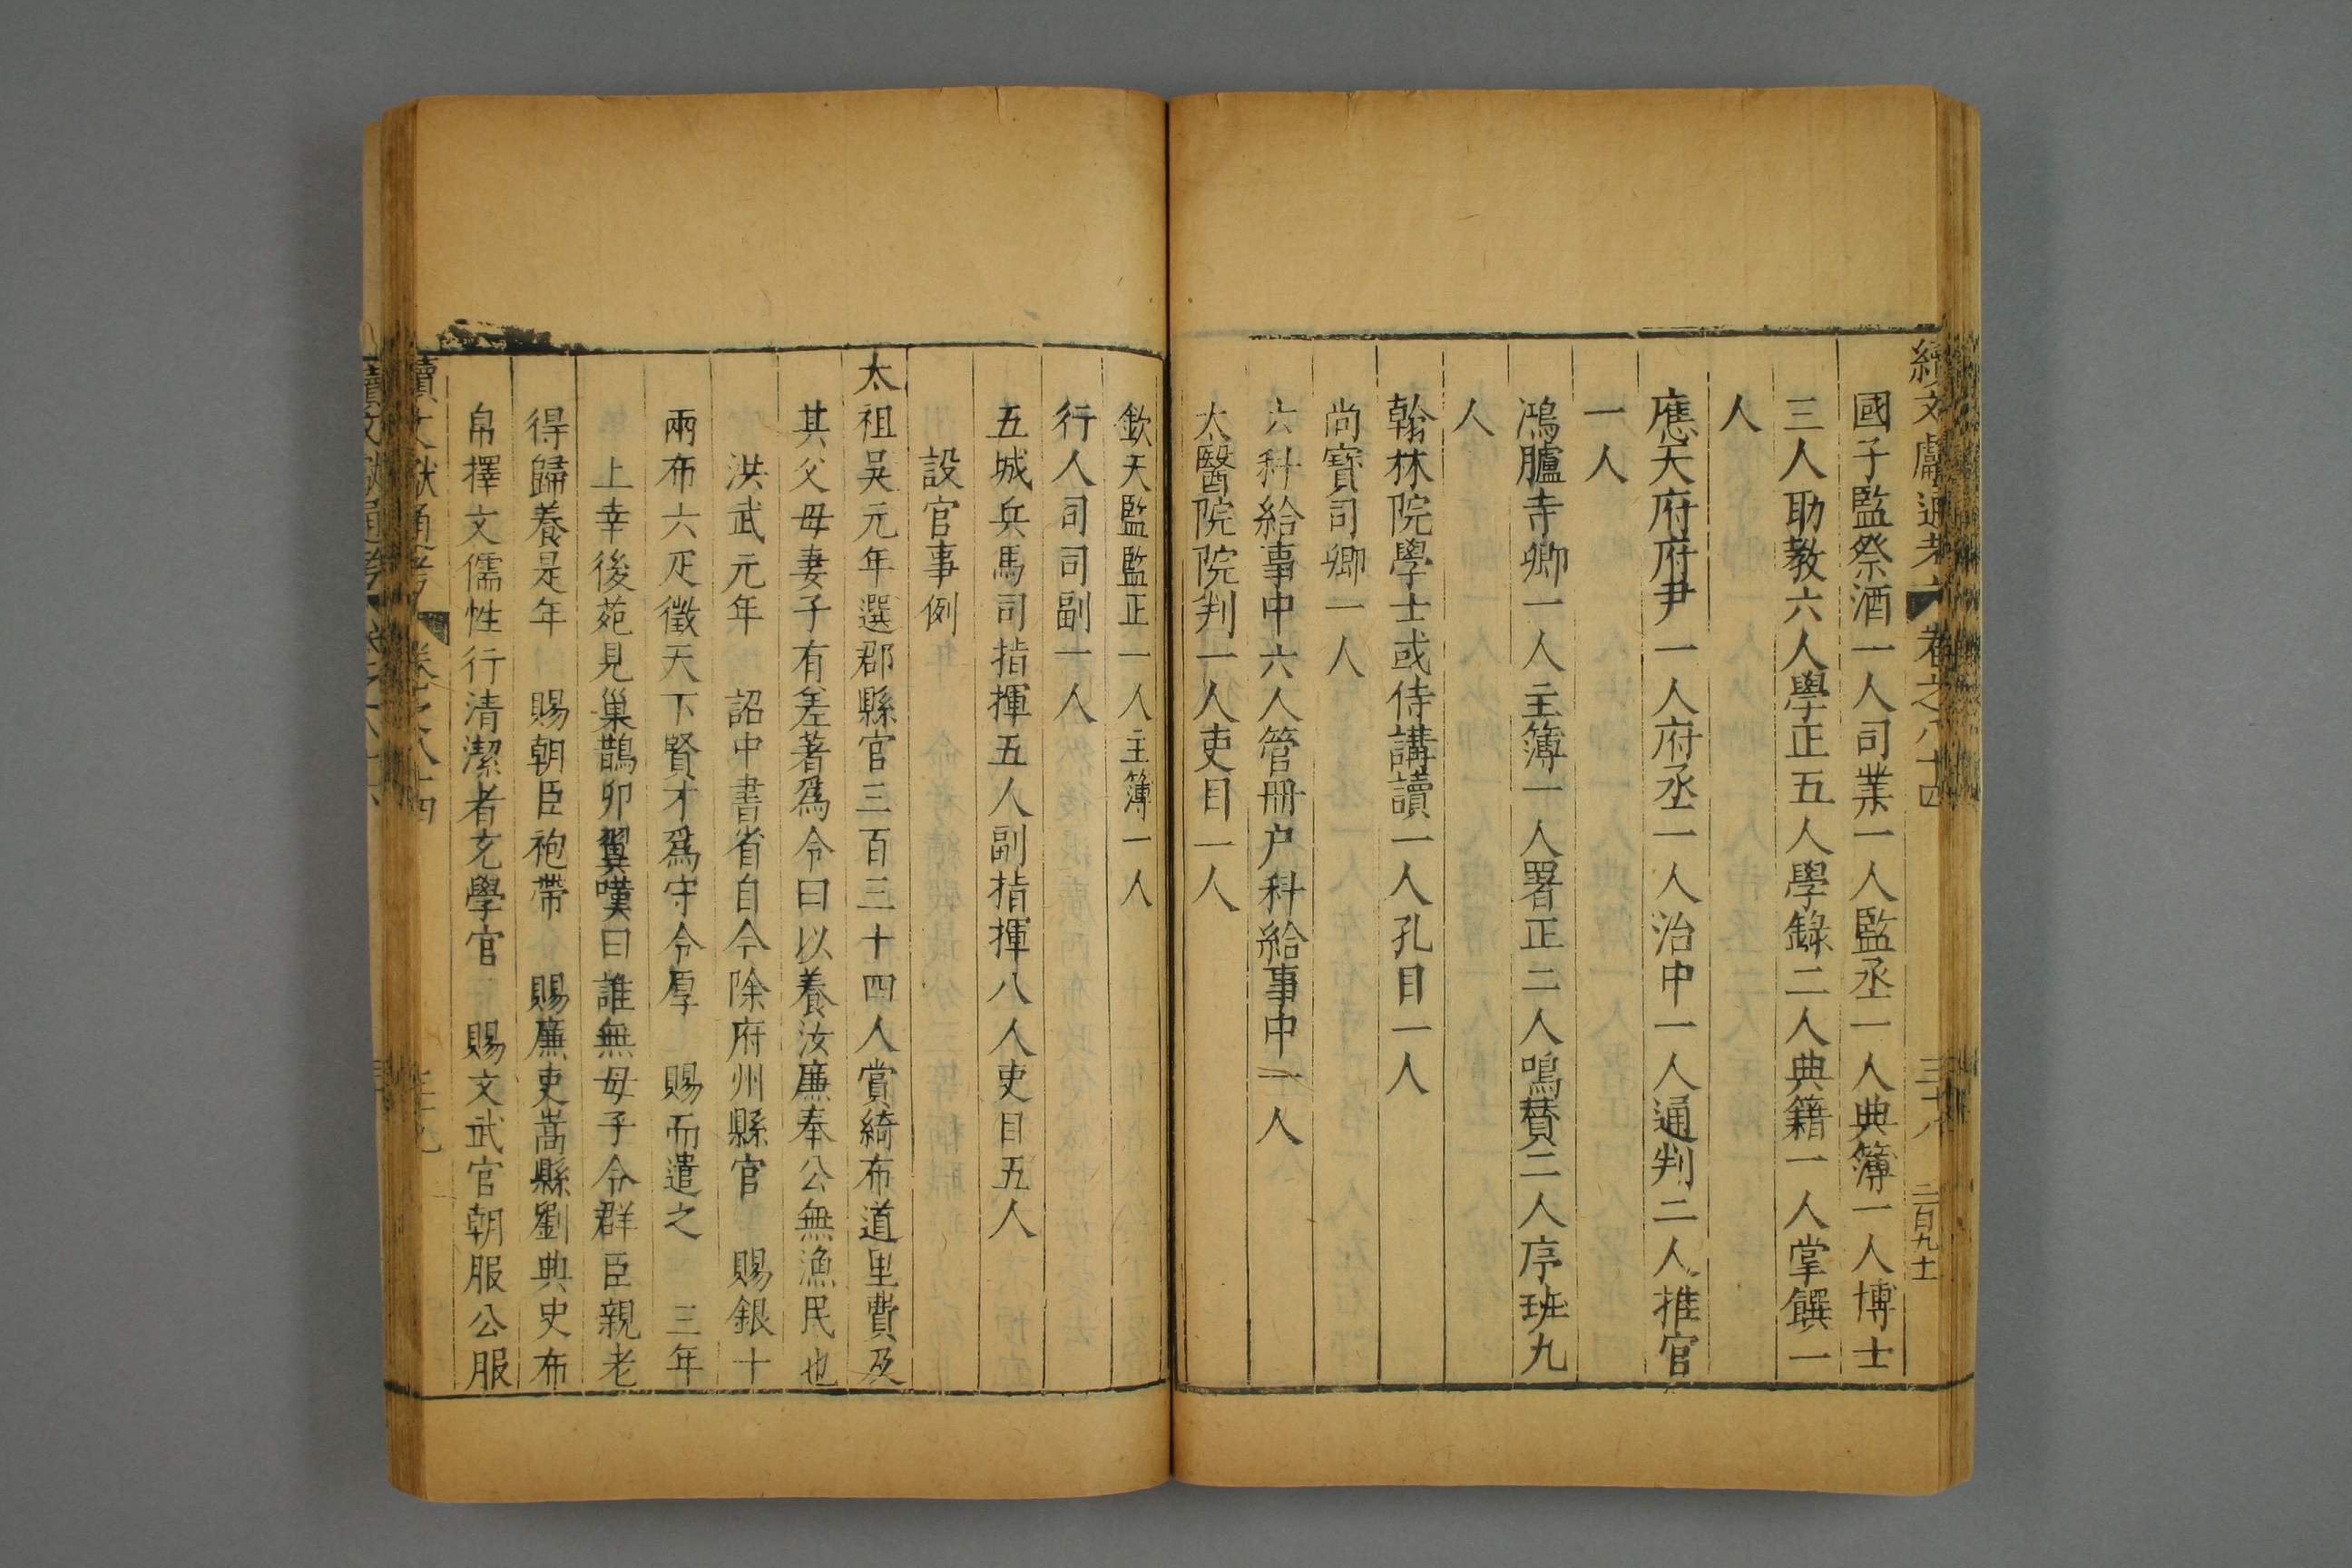 續文獻通考 卷之八十四 三十八 二百九十
國子監祭酒一人司業一人監丞一人典簿一人博士
三人助教六人學正五人學錄二人典籍一人掌饌一
人
應天府府尹一人府丞一人治中一人通判二人推官
一人
鴻臚寺卿一人主簿一人署正二人鳴贊二人序班九
人
翰林院學士或侍講讀一人孔目一人
尚寶司卿一人
六科給事中六人管冊户科給事中一人
太醫院院判一人吏目一人
欽天監監正一人主簿一人
行人司司副一人
五城兵馬司指揮五人副指揮八人吏目五人
設官事例
太祖吳元年選郡縣官三百三十四人賞綺布道里費及
其父母妻子有差著爲令曰以養汝廉奉公無漁民也
洪武元年 詔中書省自今除府州縣官 賜銀十
兩布六疋徵天下賢才爲守令厚 賜而遣之 三年
上幸後苑見巢鵲卵翼嘆曰誰無母子令群臣親老
得歸養是年 賜朝臣袍帶 賜廉吏嵩縣劉典史布
帛擇文儒性行清潔者充學官 賜文武官朝服公服
續文獻通考 卷之八十四
續文獻通考